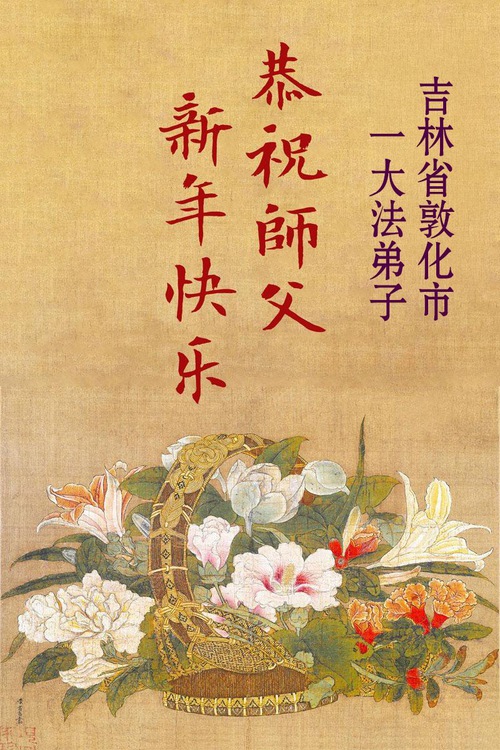 吉林省敦化市
一大法弟子
恭祝師父
新年快乐